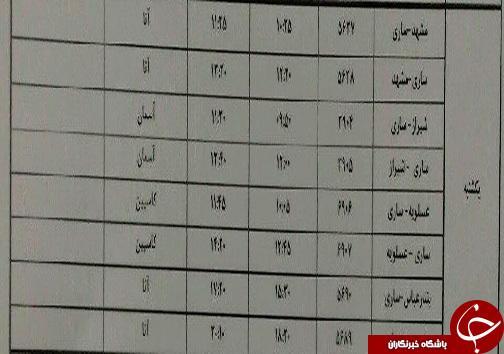 یکشنبه
مشهد-ساری ۵۶۳۷ ۱۰:۲۵ ۱۱:۲۵ آتا
ساری-مشهد ۵۶۳۸ ۱۲:۲۰ ۱۳:۲۰ آتا
شیراز-ساری ۳۹۰۴ ۰۹:۵۰ ۱۱:۲۰ آسمان
ساری-شیراز ۳۹۰۵ ۱۲:۰۰ ۱۳:۴۰ آسمان
عسلویه-ساری ۶۹۰۶ ۱۰:۰۵ ۱۱:۴۵ کاسپین
ساری-عسلویه ۶۹۰۷ ۱۲:۴۵ ۱۴:۲۰ کاسپین
بندرعباس-ساری ۵۶۹۰ ۱۵:۲۰ ۱۷:۲۰ آتا
۵۶۸۹ ۱۸:۲۰ ۲۰:۱۰ آتا
باشگاه خبرنگاران